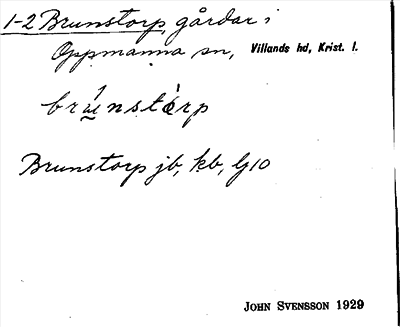 1-2 Brunstorp, gårdar i
Oppmanna sn, Villands hd, Krist. l.
brunstorp
Brunstorp jb, kb, Gj10
JOHN SVENSSON 1929